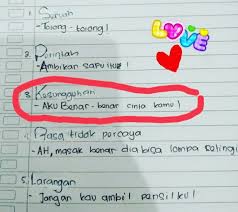 1. Seruan
- Tolong - tolong!
LOVE
2. Perintah
- Ambilkan sapu itu!
3. Kesungguhan
- Aku Benar - benar cinta kamu!
4. Rasa tidak percaya
- AH, masak benar dia bisa lompat setinggi
5. Larangan
- Jangan kau ambil pensilku!